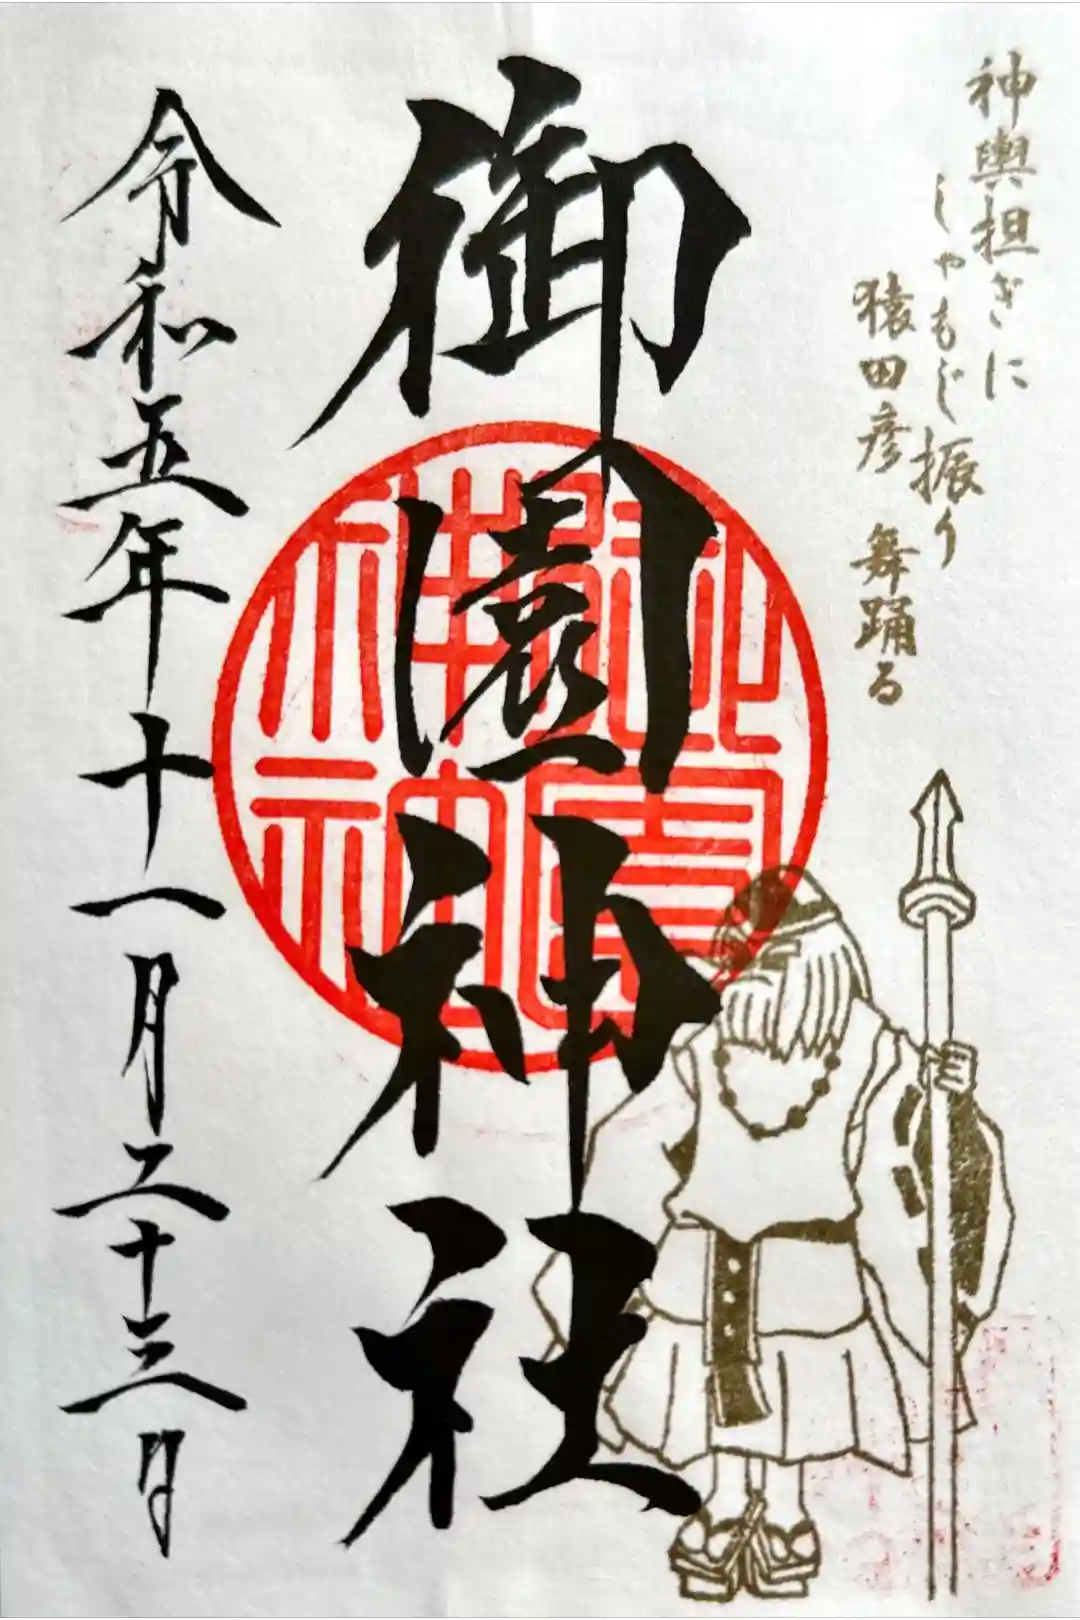 神輿担ぎに
しゃもじ振り
猿田彦 舞踊る
御園神社
令和五年十一月二十三日